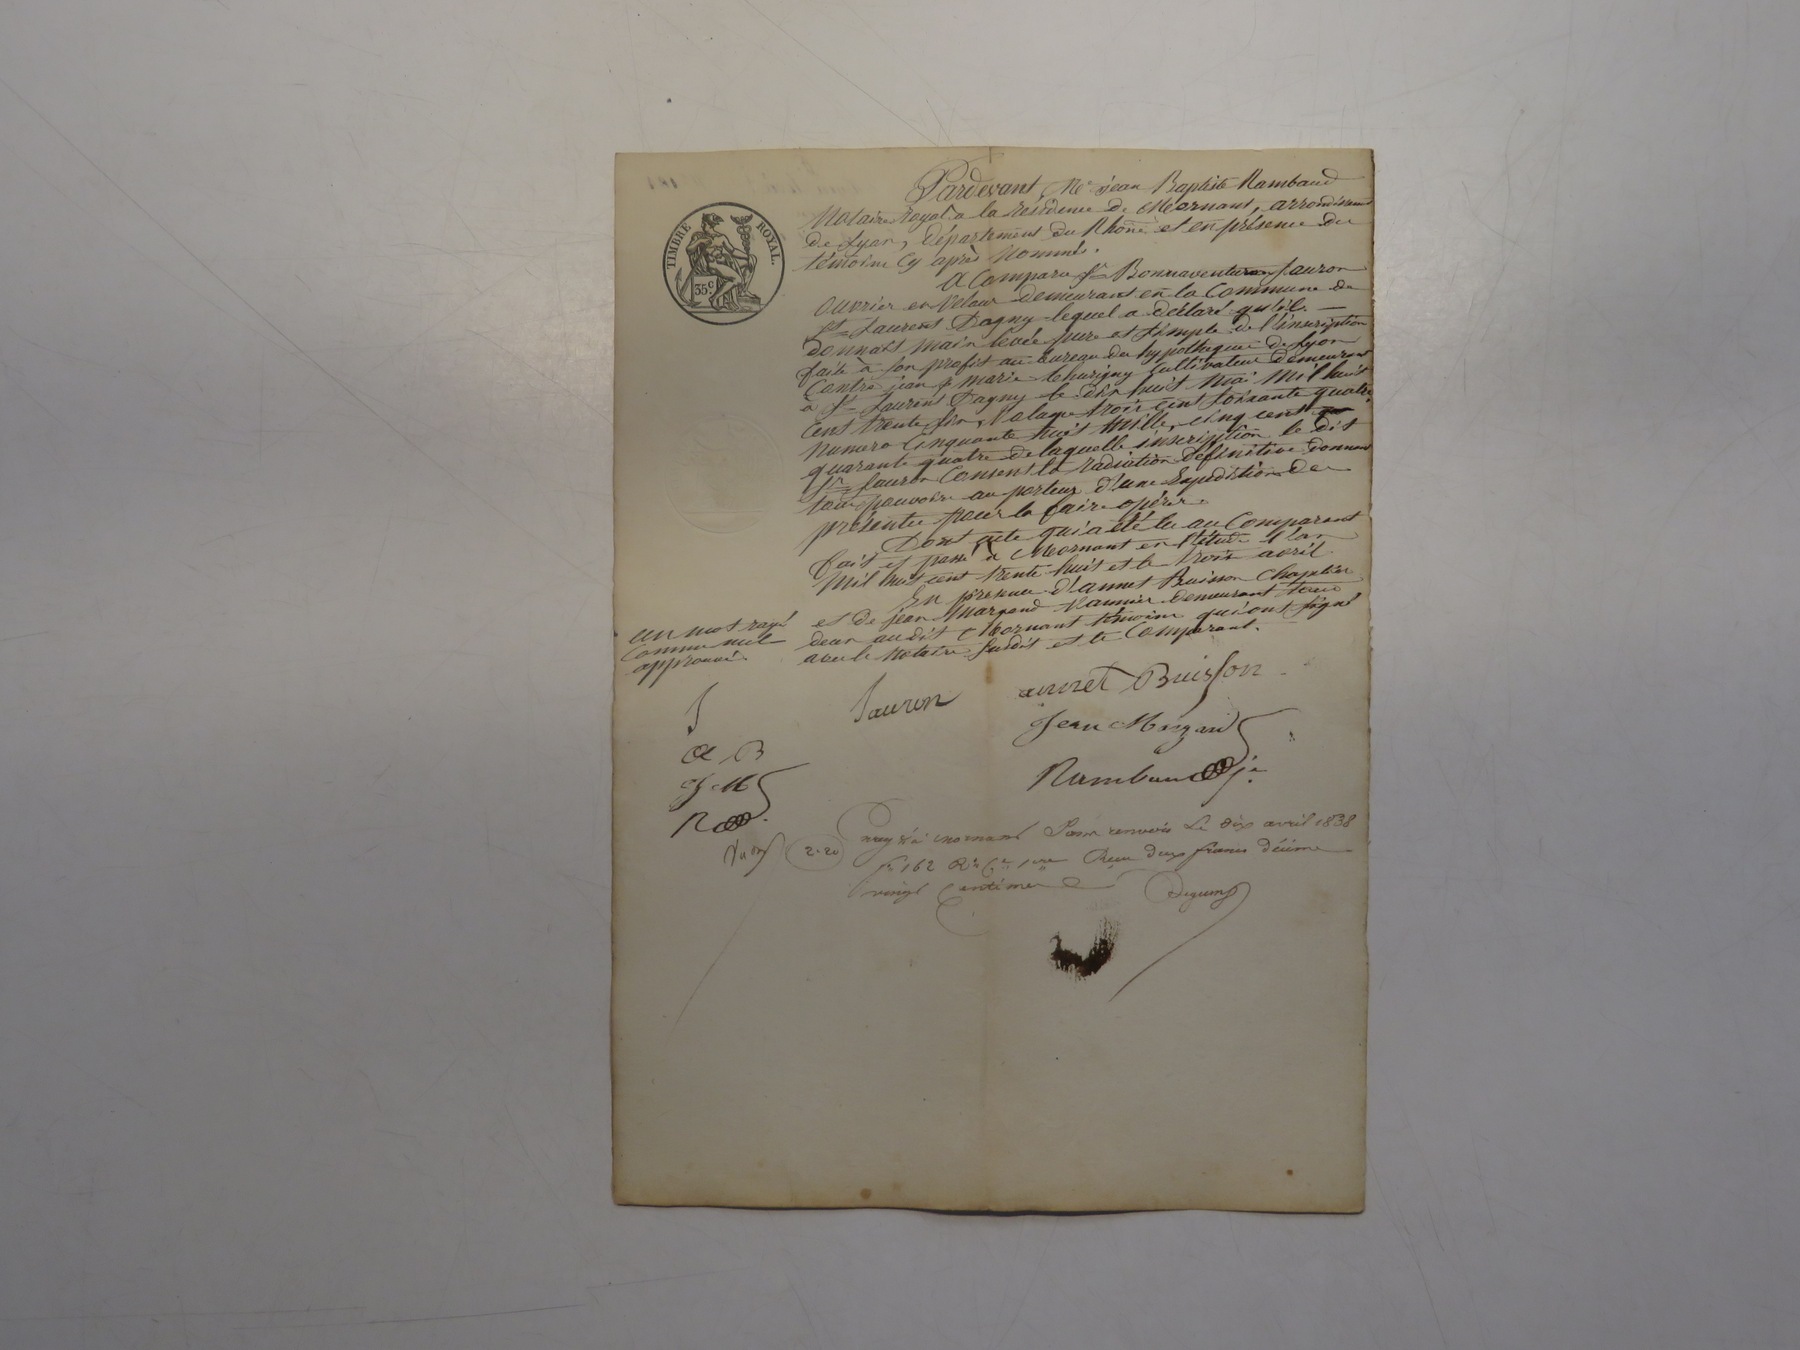 TIMBRE ROYAL.
35 c
Pardevant Me jean Baptiste Rambaud
Notaire royal a la résidence de Mornant, arrondissement
de Lyon, département du Rhône et en présence des
témoins cy après nommés.
A Comparu sr Bonnaventure Sauron
ouvrier en velour demeurant en la Commune de
St Laurent Dagny lequel a déclaré qu'il
donnait main levée pure et simple de l'inscription
faite à son profit au bureau des hypothèques de Lyon
Contre jean marie cultivateur demeurant
à St Laurent Dagny le dix huit mai mil huit
cent trente six, volume trois cent soixante quatre
numero cinquante huit mille, cinq cent
quarante quatre de laquelle inscription le dit
sr Sauron Consent la radiation définitive donnant
tous pouvoirs au porteur d'une Expédition des
présentes pour la faire opérer
Dont acte qui a été lu au Comparant
fait et passé a Mornant en l'étude l'an
mil huit cent trente huit et le trois avril
En présence d'annet Buisson Chapelier
et de jean Margand vannier demeurant tous
deux audit Mornant témoins qui ont signé
avec le Notaire susdit et le Comparant.
un mot rayé
comme nul
approuvé.
S
a B
J M
R
Sauron
annet Buisson
Jean Margand
Rambaud je
2.20
à mornant sans renvois Le dix avril 1838
fo 162 Ro Ce 1ere Reçu deux francs décime
vingt Centimes